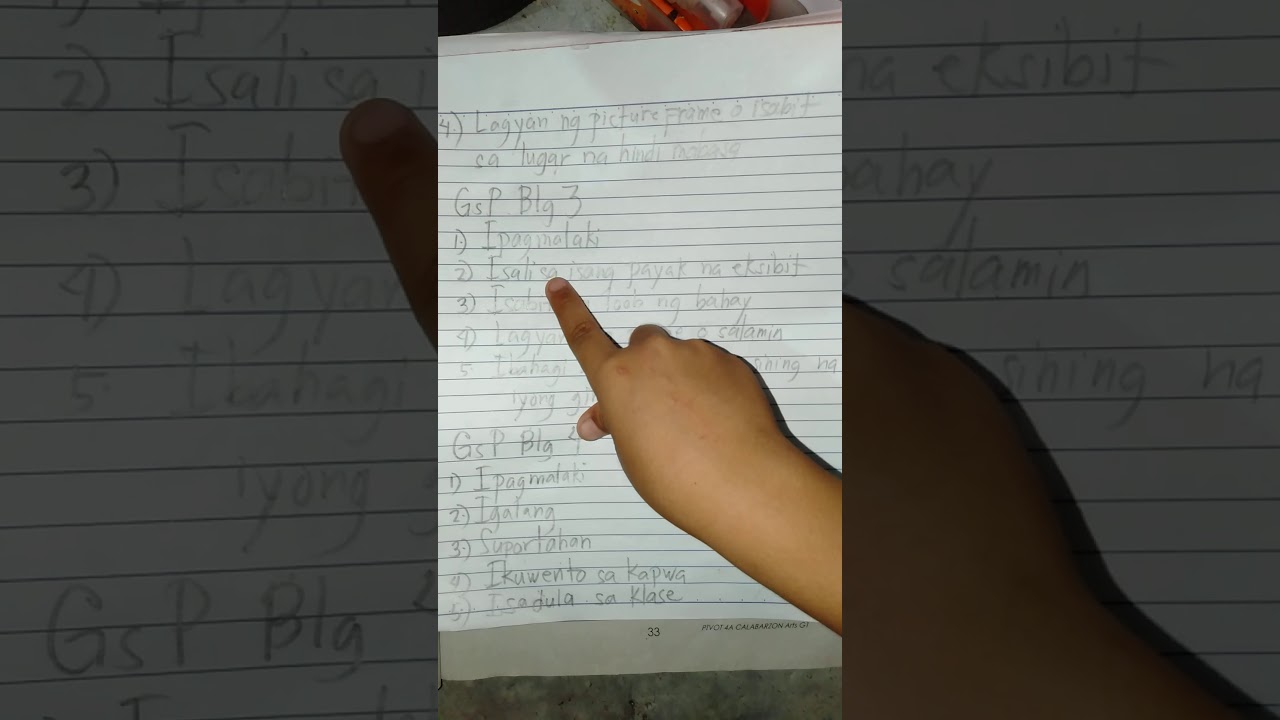 4.) Lagyan ng picture frame o isabit
sa lugar na hindi mabasa
GsP Blg 3
1) Ipagmalaki
2) Isali sa isang payak na eksibit
3) loob ng bahay
4) Lagyan o salamin
5. Ibahagi sining na
iyong
GsP Blg 4
1) Ipagmalaki
2.) Igalang
3.) Suportahan
4) Ikuwento sa kapwa
5) Isadula sa klase
33
PIVOT 4A CALABARZON Arts G1